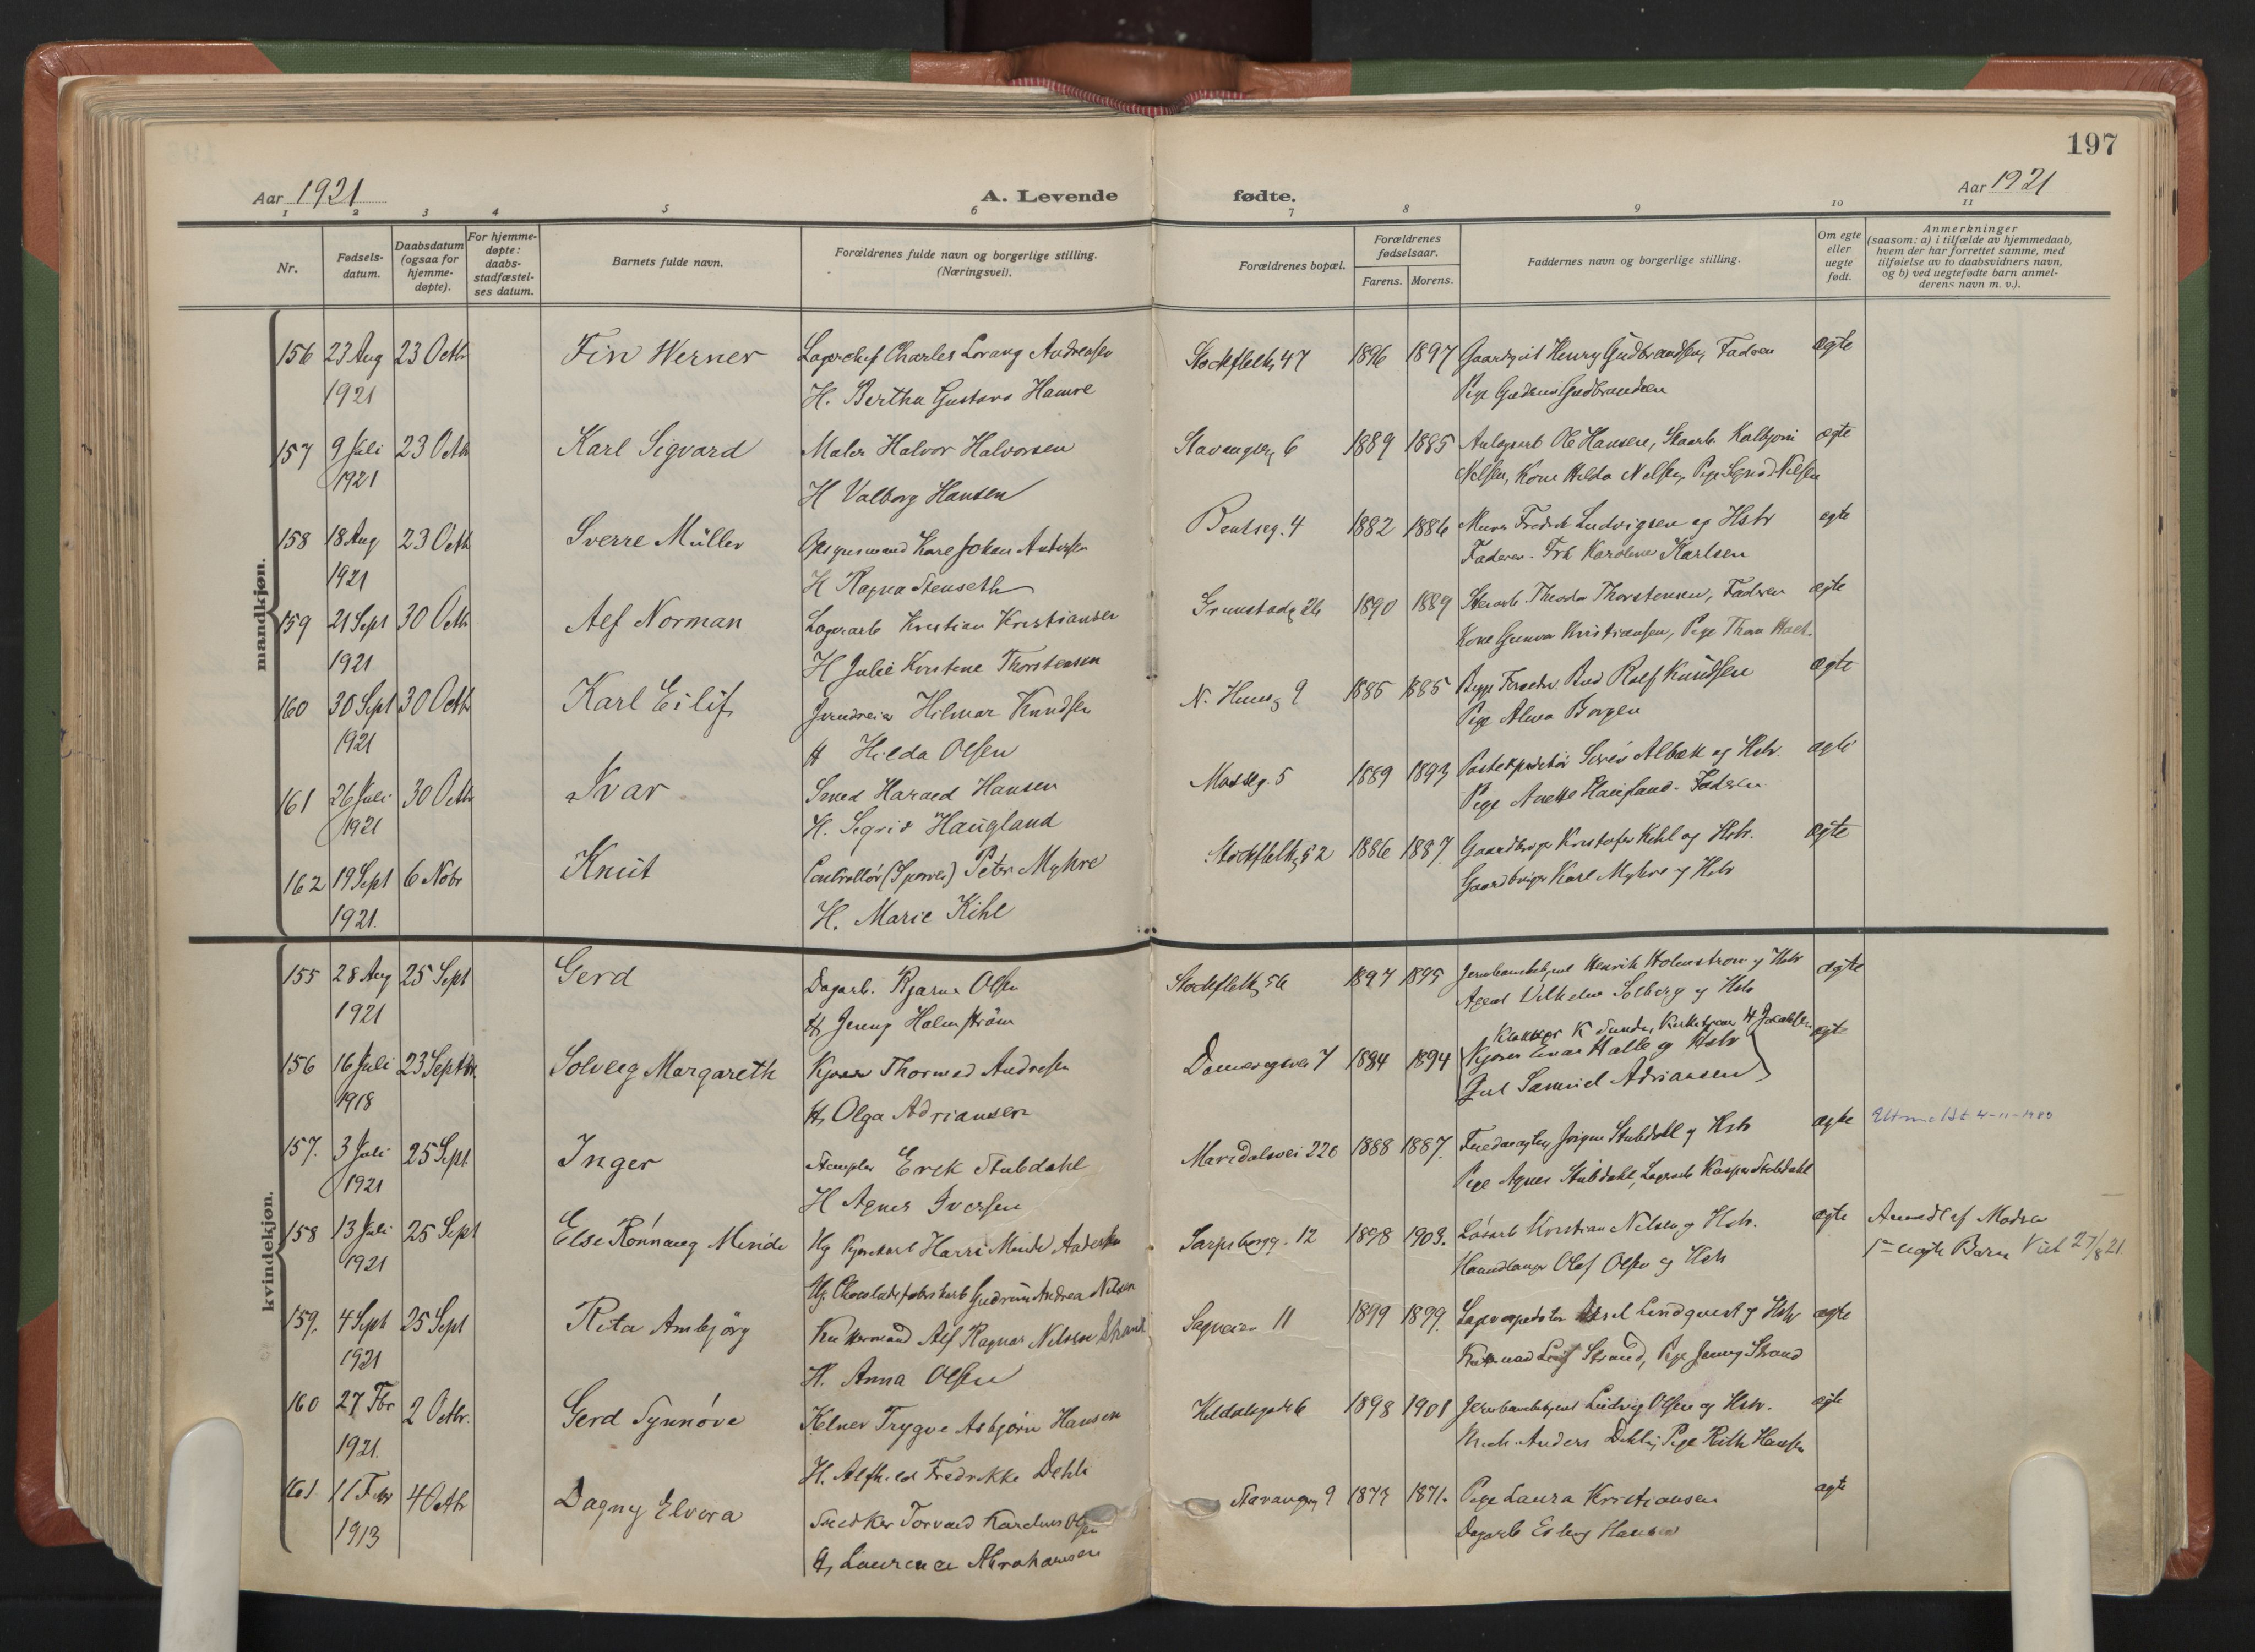 197
Aar 1921
A. Levende fødte.
Aar 1921
1 2 3 4 5 6 7 8 9 10 11
Nr.
Fødsels-
datum.
Daabsdatum
(ogsaa for
hjemme-
døpte).
For hjemme-
døpte:
daabs-
stadfæstel-
ses datum.
Barnets fulde navn.
Forældrenes fulde navn og borgerlige stilling.
(Næringsvei).
Forældrenes bopæl.
Forældrenes
fødselsaar.
Farens. Morens.
Faddernes navn og borgerlige stilling.
Om egte
eller
uegte
født.
Anmerkninger
(saasom: a) i tilfælde av hjemmedaab,
hvem der har forrettet samme, med
tilføielse av to daabsvidners navn,
og b) ved uegtefødte barn anmel-
derens navn m. v.).
mandkjøn.
156 23 Aug 23 Octbr Fin Werner Lagerchef Charles Lorang Andreasen Stockflethg 47 1896 1897 Henry Gudbrandsen, Faderen ægte
1921 H. Bertha Gustava Hamre Pige Gudrun Gudbrandsen
157 9 Juli 23 Octb Karl Sigvard Maler Halvor Halvorsen Stavangerg 6 1889 1885 Ole Hansen, ægte
1921 H Valborg Hansen Nilsen, Kone Hilda Nilsen, Pige Nilsen
158 18 Aug 23 Octb Sverre Müller Johan Andersen Bentseg. 4 1882 1886 Murer Fredrik Ludvigsen og Hstr egte
1921 H Ragna Stenseth Faderen. Frk Karoline Karlsen
159 21 Sept 30 Octb Alf Norman Lagerarb Kristian Kristiansen Grimstadg 26 1890 1889 Thorstensen, Faderen ægte
1921 H Julie Kristine Thorstensen Kone Gunvor Kristiansen, Pige
160 30 Sept 30 Octbr Karl Eilif Jerndreier Hilmar Knudsen 9 1885 1885 Rolf Knudsen ægte
1921 H Hilda Olsen Pige Alma Borgen
161 26 Juli 30 Octbr Ivar Smed Harald Hansen Mosseg. 5 1889 1893 Postekspeditør Albæk og Hstr. ægte
1921 H. Sigrid Haugland Pige Anette Haugland. Faderen
162 19 Sept 6 Nobr Knut Controllør (Sporvei) Peter Myhre Stockflethg 52 1886 1887 Gaardbruger Kristofer Kihl og Hstr. ægte
1921. H. Marie Kihl Gaardbruger Karl Myhre og Hstr
kvindekjøn.
155 28 Aug 25 Sept Gerd Dagarb. Bjarne Olsen Stockflethg 56 1897 1895 Henrik Holmstrøm og Hstr ægte
1921 H Jenny Holmstrøm Agent Vilhelm Solberg og Hstr
Klokker K Sunde, Kirketjener H Jacobsen
156 16 Juli 23 Septbr. Solveig Margareth Kjører Thormod Andresen 7 1884 1894 Kjører Einar Halle og Hstr ægte
1918 H Olga Adriansen Samuel Adriansen
157. 3 Juli 25 Sept Inger Erik Stubdahl Maridalsvei 220 1888 1887. Jørgen Stubdahl og Hstr ægte Utmeldt 4-11-1980
1921 H Agnes Iversen Pige Agnes Stubdahl, Lagerarb Kasper Stubdahl
158 13 Juli 25 Sept Else Rønnaug Minde Ug Harri Minde Andersen Sarpsborgg. 12 1898 1903. Løsarb Kristian Nilsen og Hstr. ægte Anmeldt af Moderen
1921 Ug. Chocoladefabrikarb Gudrun Andrea Nilsen Haandlanger Olaf Olsen og Hstr uægte Barn 27/8 21.
159. 4 Sept 25 Sept Rita Ambjörg Alf Ragnar Nilsen Strand Sagveien 11 1899 1899. Lindquist og Hstr ægte
1921 H. Anna Olsen Leif Strand, Pige Jenny Strand
160 27 Fbr 2 Octbr. Gerd Synnöve Kelner Trygve Asbjørn Hansen 6 1898 1901 Ludvig Olsen og Hstr. ægte
1921. H. Alfhild Fredrikke Dehli Anders Dehli, Pige Ruth Hansen
161 11 Febr 4 Octb Dagny Elvira Snedker Torvald Olsen Stavangerg 9 1873 1871. Pige Laura Kristiansen ægte
1913 H, Laurence Abrahamsen Dagarb Esberg Hansen